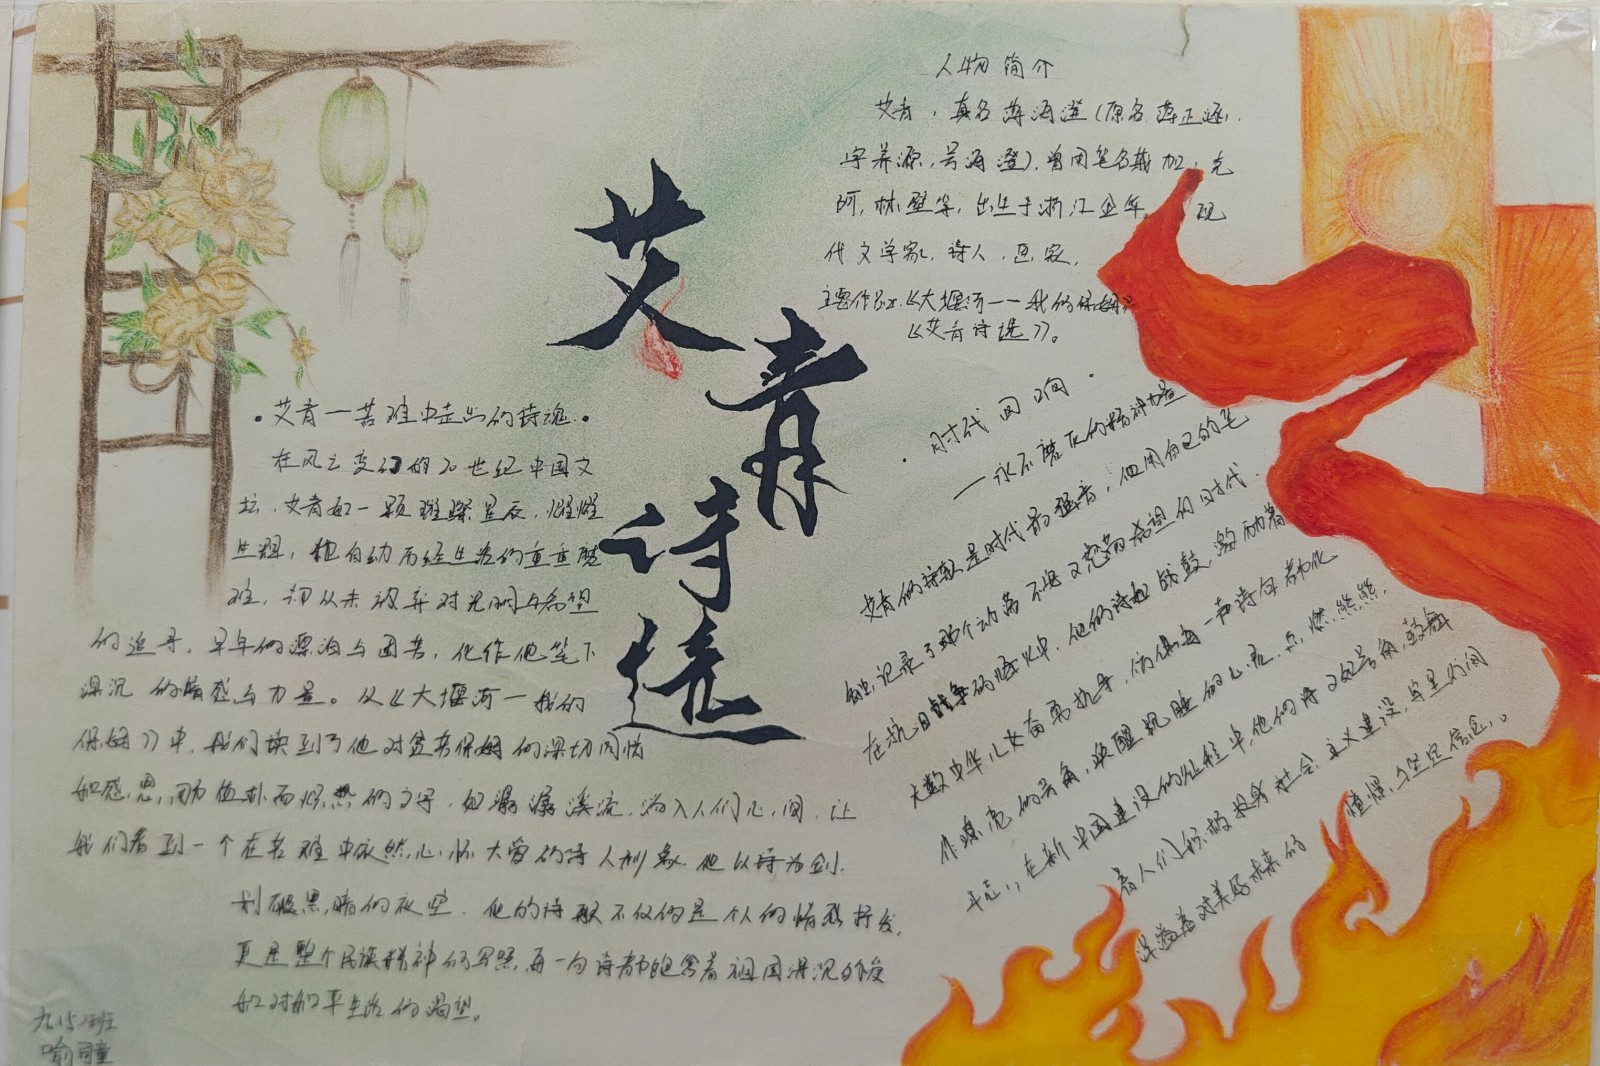 艾青诗选
人物简介
艾青，真名蒋海澄（原名蒋正涵，
字养源，号海澄），曾用笔名莪加、克
阿、林壁等，出生于浙江金华，现
代文学家、诗人、画家。
主要作品：《大堰河——我的保姆》
《艾青诗选》。
·艾青—苦难中走出的诗魂·
在风云变幻的20世纪中国文
坛，艾青如一颗璀璨星辰，熠熠
生辉，他自幼历经生活的重重磨
难，却从未放弃对光明与希望
的追寻。早年的漂泊与困苦，化作他笔下
深沉的情感与力量。从《大堰河—我的
保姆》中，我们读到了他对贫苦保姆的深切同情
和感恩，那质朴而炽热的文字，如潺潺溪流，淌入人们心间，让
我们看到一个在苦难中依然心怀大爱的诗人形象。他以诗为剑，
划破黑暗的夜空，他的诗歌不仅仅是个人的情感抒发，
更是整个民族精神的写照，每一句诗都饱含着祖国深沉的爱
和对和平生活的渴望。
·时代回响·
—永不磨灭的精神力量
艾青的诗歌是时代最强音，他用自己的笔
触记录了那个动荡不安又充满希望的时代。
在抗日战争的烽火中，他的诗如战鼓，激励着
大数中华儿女奋勇抗争，仿佛每一声诗句都化
作嘹亮的号角，唤醒沉睡的心灵，点燃熊熊
斗志，在新中国建设的征程中，他的诗又如号角，鼓舞
着人们积极投身社会主义建设，字里行间
洋溢着对美好未来的憧憬与坚定信念。
九15班
喻司童